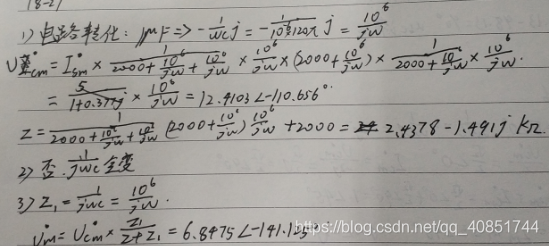 (8-2)
1) 电路转化: 1μF => -1/(wc) j = -1/(10^-6·120π) j = 10^6/(jw)
U̇cm = İsm × 1/(2000+10^6/(jw)+10^6/(jw)) × 10^6/(jw) × (2000+10^6/(jw)) × 1/(2000+10^6/(jw)) × 10^6/(jw).
= 5/(1+0.377j) × 10^6/(jw) = 12.4103∠-110.656°
Z = 1/(2000+10^6/(jw)+10^6/(jw)) (2000+10^6/(jw)) 10^6/(jw) + 2000 = 2.4378-1.491j kΩ.
2) 否. 1/(jwc) 全变
3) Z₁ = 1/(jwc) = 10^6/(jw)
U̇m = U̇cm × Z₁/(Z+Z₁) = 6.8475∠-141.1
https://blog.csdn.net/qq_40851744